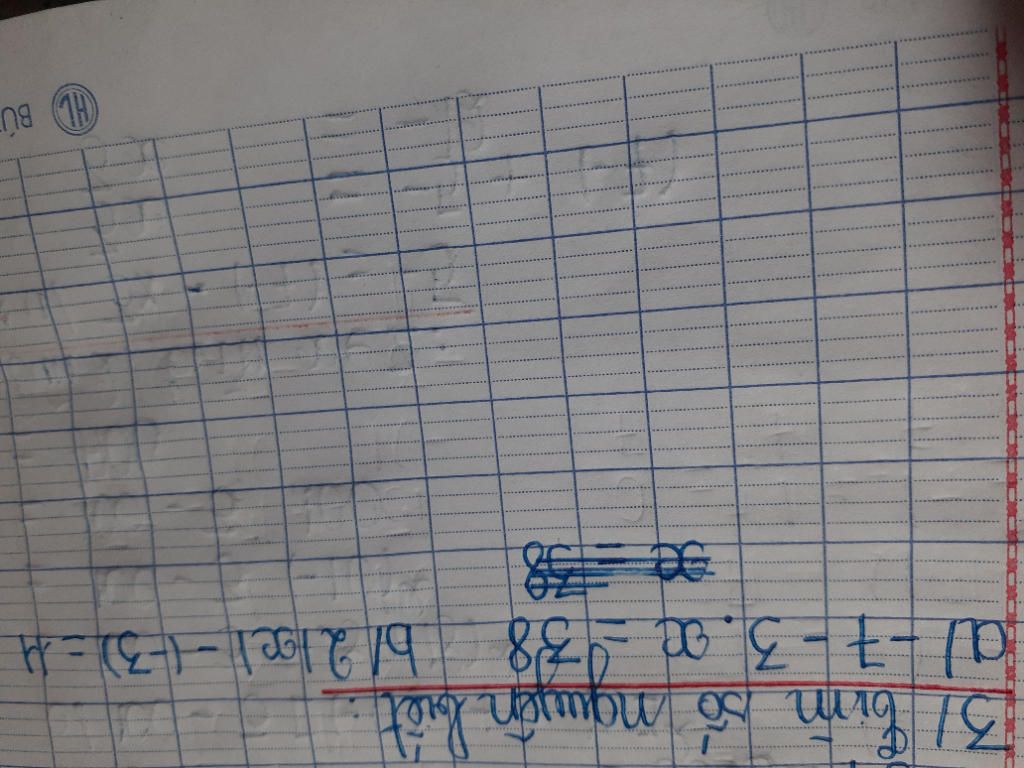 3/ Tìm số nguyên biết:
a) - 7 - 3 . x = 38 b) 2|x| - (-3) = 11
x = 38
HL BÚT